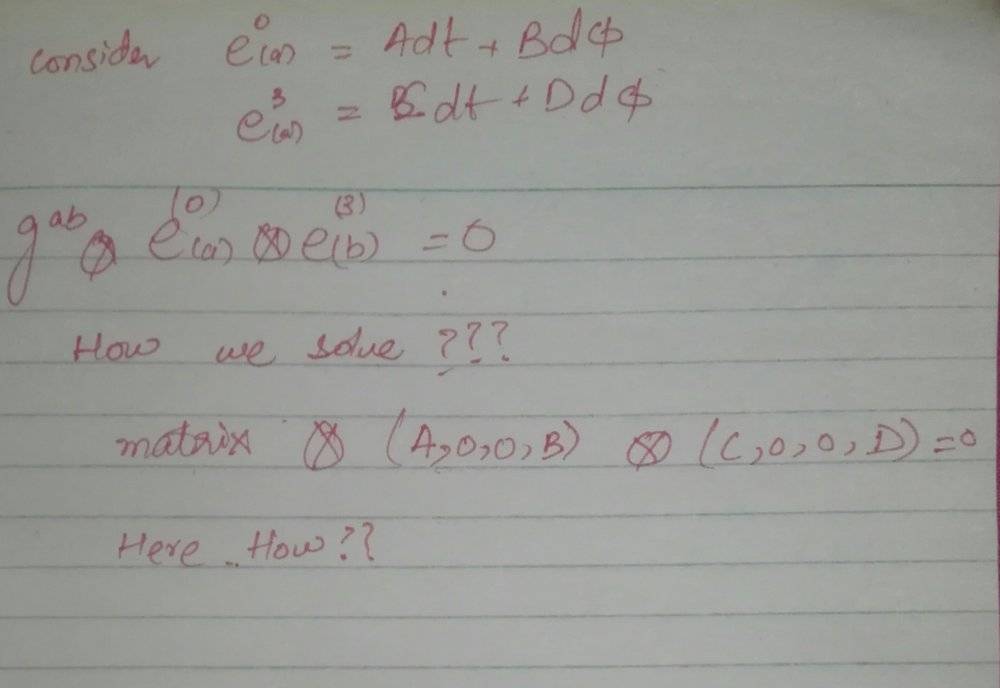 consider e⁰(a) = Adt + Bdϕ
e³(a) = Cdt + Ddϕ
gᵃᵇ ⊗ e⁽⁰⁾(a) ⊗ e⁽³⁾(b) = 0
How we solve ???
matrix ⊗ (A,0,0,B) ⊗ (C,0,0,D)=0
Here .. How??